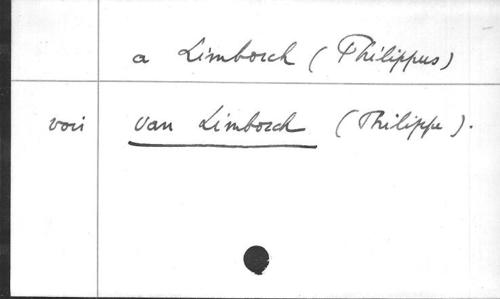 a Limborch (Philippus)
voir van Limborch (Philippe).